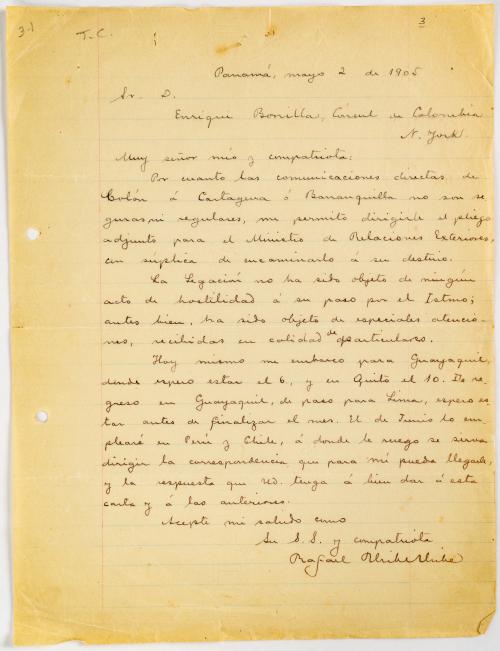 3-1
T. C.
3
Panamá, mayo 2 de 1905
Sr. D.
Enrique Bonilla, Cónsul de Colombia
N. York.
Muy señor mío y compatriota:
Por cuanto las comunicaciones directas de
Colón á Cartagena ó Barranquilla no son se
guras ni regulares, me permito dirigirle el pliego
adjunto para el Ministro de Relaciones Exteriores,
con súplica de encaminarlo á su destino.
La Legación no ha sido objeto de ningún
acto de hostilidad á su paso por el Istmo;
antes bien, ha sido objeto de especiales atencio-
nes, recibidas en calidad de particulares.
Hoy mismo me embarco para Guayaquil,
donde espero estar el 6, y en Quito el 10. De re-
greso en Guayaquil, de paso para Lima, espero es-
tar antes de finalizar el mes. El de Junio lo em-
plearé en Perú y Chile, á donde le ruego se sirva
dirigir la correspondencia que para mí pueda llegarle,
y la respuesta que Ud. tenga á bien dar á esta
carta y á las anteriores.
Acepte mi saludo como
Su S. S. y compatriota
Rafael Uribe Uribe